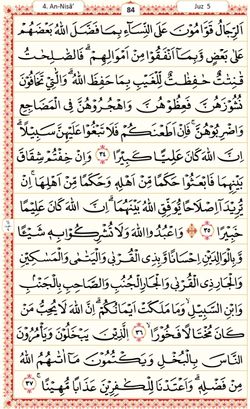 4. An-Nisā'
84
Juz 5
اَلرِّجَالُ قَوَّامُوْنَ عَلَى النِّسَاۤءِ بِمَا فَضَّلَ اللّٰهُ بَعْضَهُمْ
عَلٰى بَعْضٍ وَّبِمَآ اَنْفَقُوْا مِنْ اَمْوَالِهِمْ ۗ فَالصّٰلِحٰتُ
قٰنِتٰتٌ حٰفِظٰتٌ لِّلْغَيْبِ بِمَا حَفِظَ اللّٰهُ ۗ وَالّٰتِيْ تَخَافُوْنَ
نُشُوْزَهُنَّ فَعِظُوْهُنَّ وَاهْجُرُوْهُنَّ فِى الْمَضَاجِعِ
وَاضْرِبُوْهُنَّ ۚ فَاِنْ اَطَعْنَكُمْ فَلَا تَبْغُوْا عَلَيْهِنَّ سَبِيْلًا ۗ
اِنَّ اللّٰهَ كَانَ عَلِيًّا كَبِيْرًا ٣٤ وَاِنْ خِفْتُمْ شِقَاقَ
بَيْنِهِمَا فَابْعَثُوْا حَكَمًا مِّنْ اَهْلِهٖ وَحَكَمًا مِّنْ اَهْلِهَا ۚ اِنْ
يُّرِيْدَآ اِصْلَاحًا يُّوَفِّقِ اللّٰهُ بَيْنَهُمَا ۗ اِنَّ اللّٰهَ كَانَ عَلِيْمًا
خَبِيْرًا ٣٥ وَاعْبُدُوا اللّٰهَ وَلَا تُشْرِكُوْا بِهٖ شَيْـًٔا
وَّبِالْوَالِدَيْنِ اِحْسَانًا وَّبِذِى الْقُرْبٰى وَالْيَتٰمٰى وَالْمَسٰكِيْنِ
وَالْجَارِ ذِى الْقُرْبٰى وَالْجَارِ الْجُنُبِ وَالصَّاحِبِ بِالْجَنْۢبِ
وَابْنِ السَّبِيْلِ ۙ وَمَا مَلَكَتْ اَيْمَانُكُمْ ۗ اِنَّ اللّٰهَ لَا يُحِبُّ مَنْ
كَانَ مُخْتَالًا فَخُوْرًا ۙ ٣٦ الَّذِيْنَ يَبْخَلُوْنَ وَيَأْمُرُوْنَ
النَّاسَ بِالْبُخْلِ وَيَكْتُمُوْنَ مَآ اٰتٰىهُمُ اللّٰهُ
مِنْ فَضْلِهٖ ۗ وَاَعْتَدْنَا لِلْكٰفِرِيْنَ عَذَابًا مُّهِيْنًا ۚ ٣٧